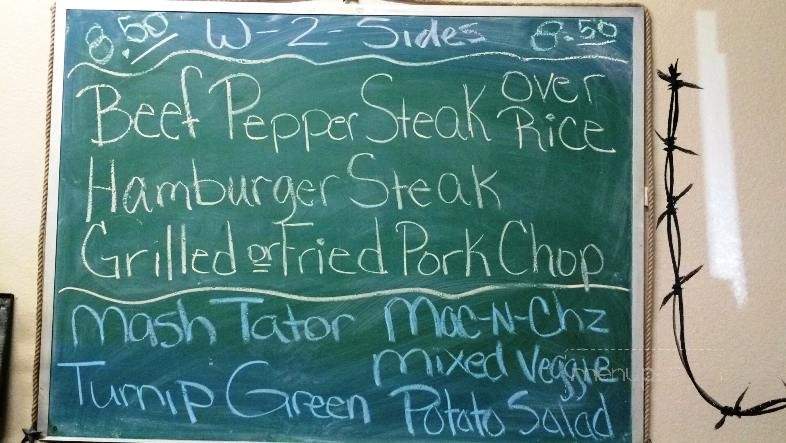 8.50 W-2-Sides 8.50
Beef Pepper Steak over Rice
Hamburger Steak
Grilled or Fried Pork Chop
Mash Tator Mac-N-Chz
Mixed Veggie
Turnip Green Potato Salad